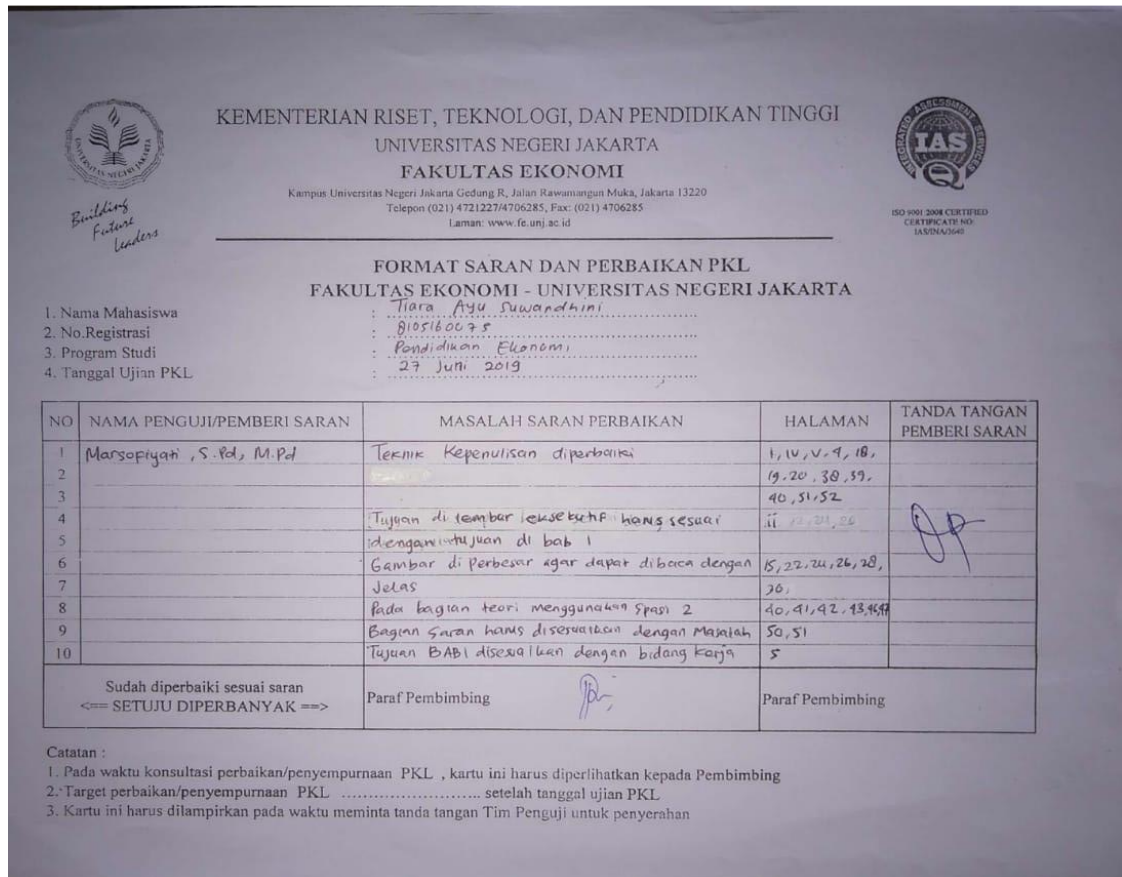 KEMENTERIAN RISET, TEKNOLOGI, DAN PENDIDIKAN TINGGI
UNIVERSITAS NEGERI JAKARTA
FAKULTAS EKONOMI
Kampus Universitas Negeri Jakarta Gedung R, Jalan Rawamangun Muka, Jakarta 13220
Telepon (021) 4721227/4706285, Fax: (021) 4706285
Laman: www.fe.unj.ac.id
UNIVERSITAS NEGERI JAKARTA
Building
Future
Leaders
INTEGRATED ASSESSMENT SERVICES
IAS
ISO 9001:2008 CERTIFIED
CERTIFICATE NO:
IAS/INA/3640
FORMAT SARAN DAN PERBAIKAN PKL
FAKULTAS EKONOMI - UNIVERSITAS NEGERI JAKARTA
1. Nama Mahasiswa : Tiara Ayu Suwandhini
2. No.Registrasi : 8105160075
3. Program Studi : Pendidikan Ekonomi
4. Tanggal Ujian PKL : 27 Juni 2019
NO NAMA PENGUJI/PEMBERI SARAN MASALAH SARAN PERBAIKAN HALAMAN TANDA TANGAN PEMBERI SARAN
1 Marsofiyati, S.Pd, M.Pd Teknik Kepenulisan diperbaiki 1, IV, V, 4, 18,
2 19, 20, 38, 39,
3 40, 51, 52
4 Tujuan di lembar eksekutif harus sesuai ii
5 dengan tujuan di bab 1
6 Gambar di Perbesar agar dapat dibaca dengan 15, 22, 24, 26, 28,
7 Jelas
8 Pada bagian teori menggunakan Spasi 2 40, 41, 42, 43,
9 Bagian Saran harus disesuaikan dengan Masalah 50, 51
10 Tujuan BAB I disesuaikan dengan bidang kerja 5
Sudah diperbaiki sesuai saran
<== SETUJU DIPERBANYAK ==> Paraf Pembimbing Paraf Pembimbing
Catatan :
1. Pada waktu konsultasi perbaikan/penyempurnaan PKL , kartu ini harus diperlihatkan kepada Pembimbing
2. Target perbaikan/penyempurnaan PKL .......................... setelah tanggal ujian PKL
3. Kartu ini harus dilampirkan pada waktu meminta tanda tangan Tim Penguji untuk penyerahan